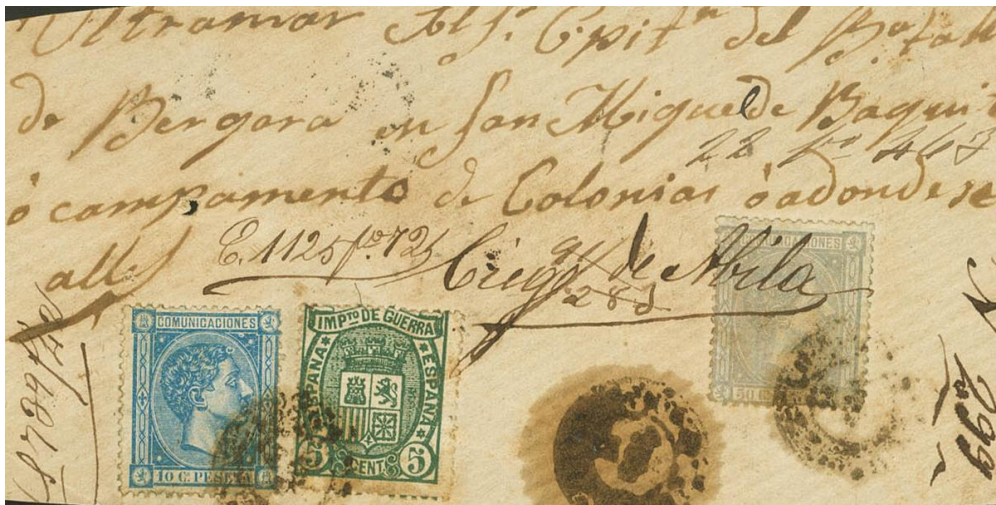 Ultramar Capitn del Batall
de Bergara en San Miguel de Baquit
22 fo 463
ó campamento de Colonias ó adonde se
alle
E. 1125 fo. 725 Ciego de Abila
283
COMUNICACIONES
10 C. PESETA
IMPTO DE GUERRA
ESPAÑA
ESPAÑA
5 CENT. 5
COMUNICACIONES
50
299